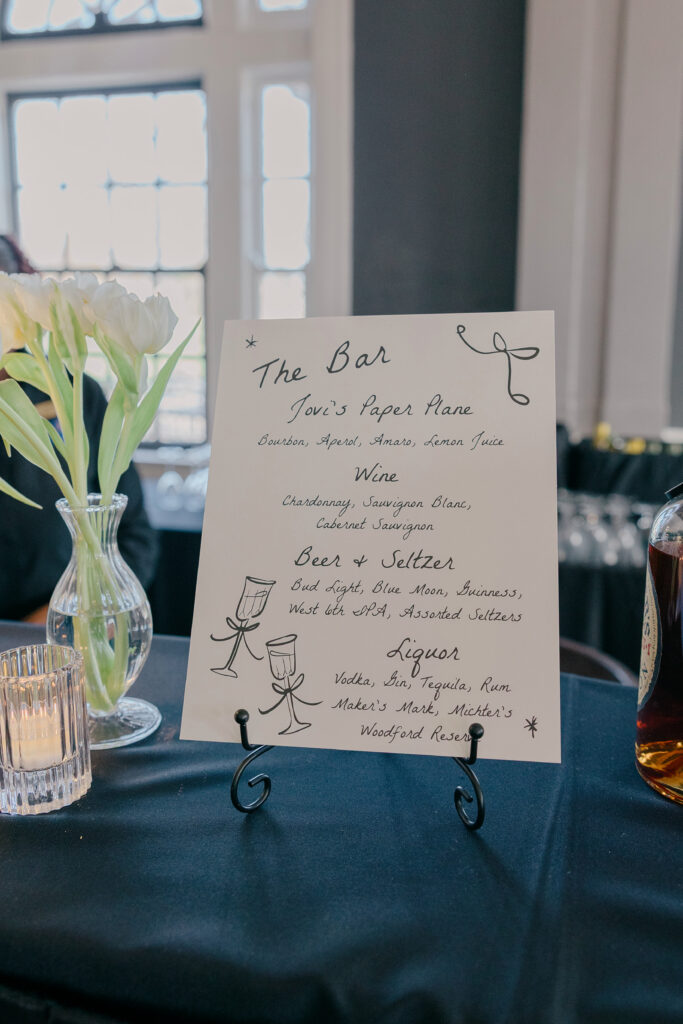 The Bar
Jovi's Paper Plane
Bourbon, Aperol, Amaro, Lemon Juice
Wine
Chardonnay, Sauvignon Blanc,
Cabernet Sauvignon
Beer & Seltzer
Bud Light, Blue Moon, Guinness,
West 6th IPA, Assorted Seltzers
Liquor
Vodka, Gin, Tequila, Rum
Maker's Mark, Michter's
Woodford Reserve